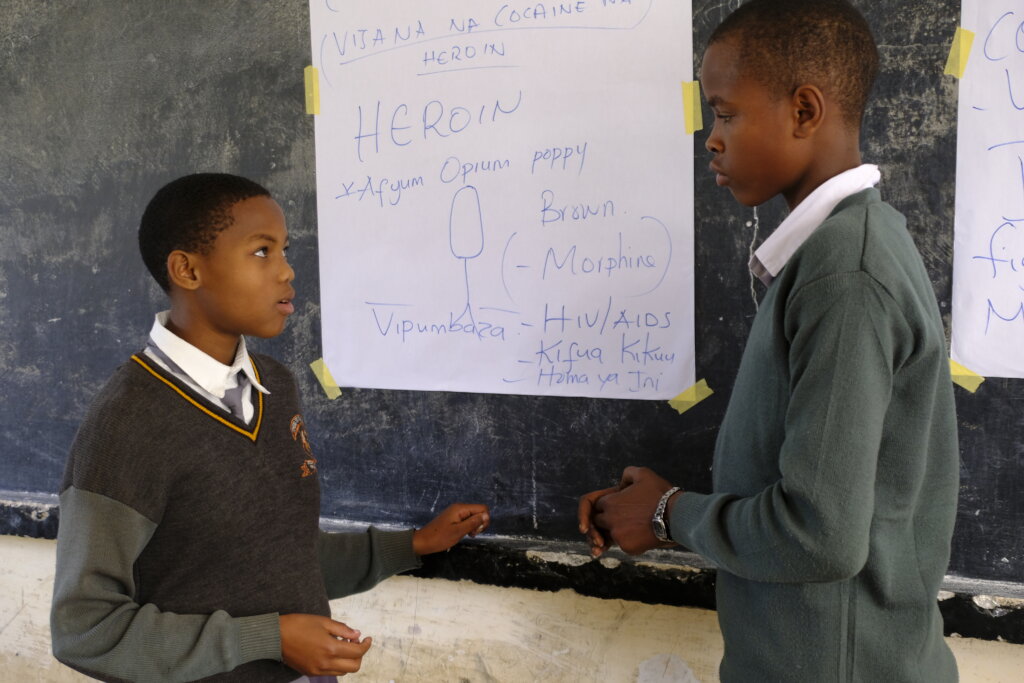 (VIJANA NA COCAINE NA
HEROIN
HEROIN
*Afyum Opium poppy
Brown
(- Morphine)
Vipumbaza - HIV/AIDS
- Kifua Kikuu
- Homa ya Ini
CO
-
fi
M